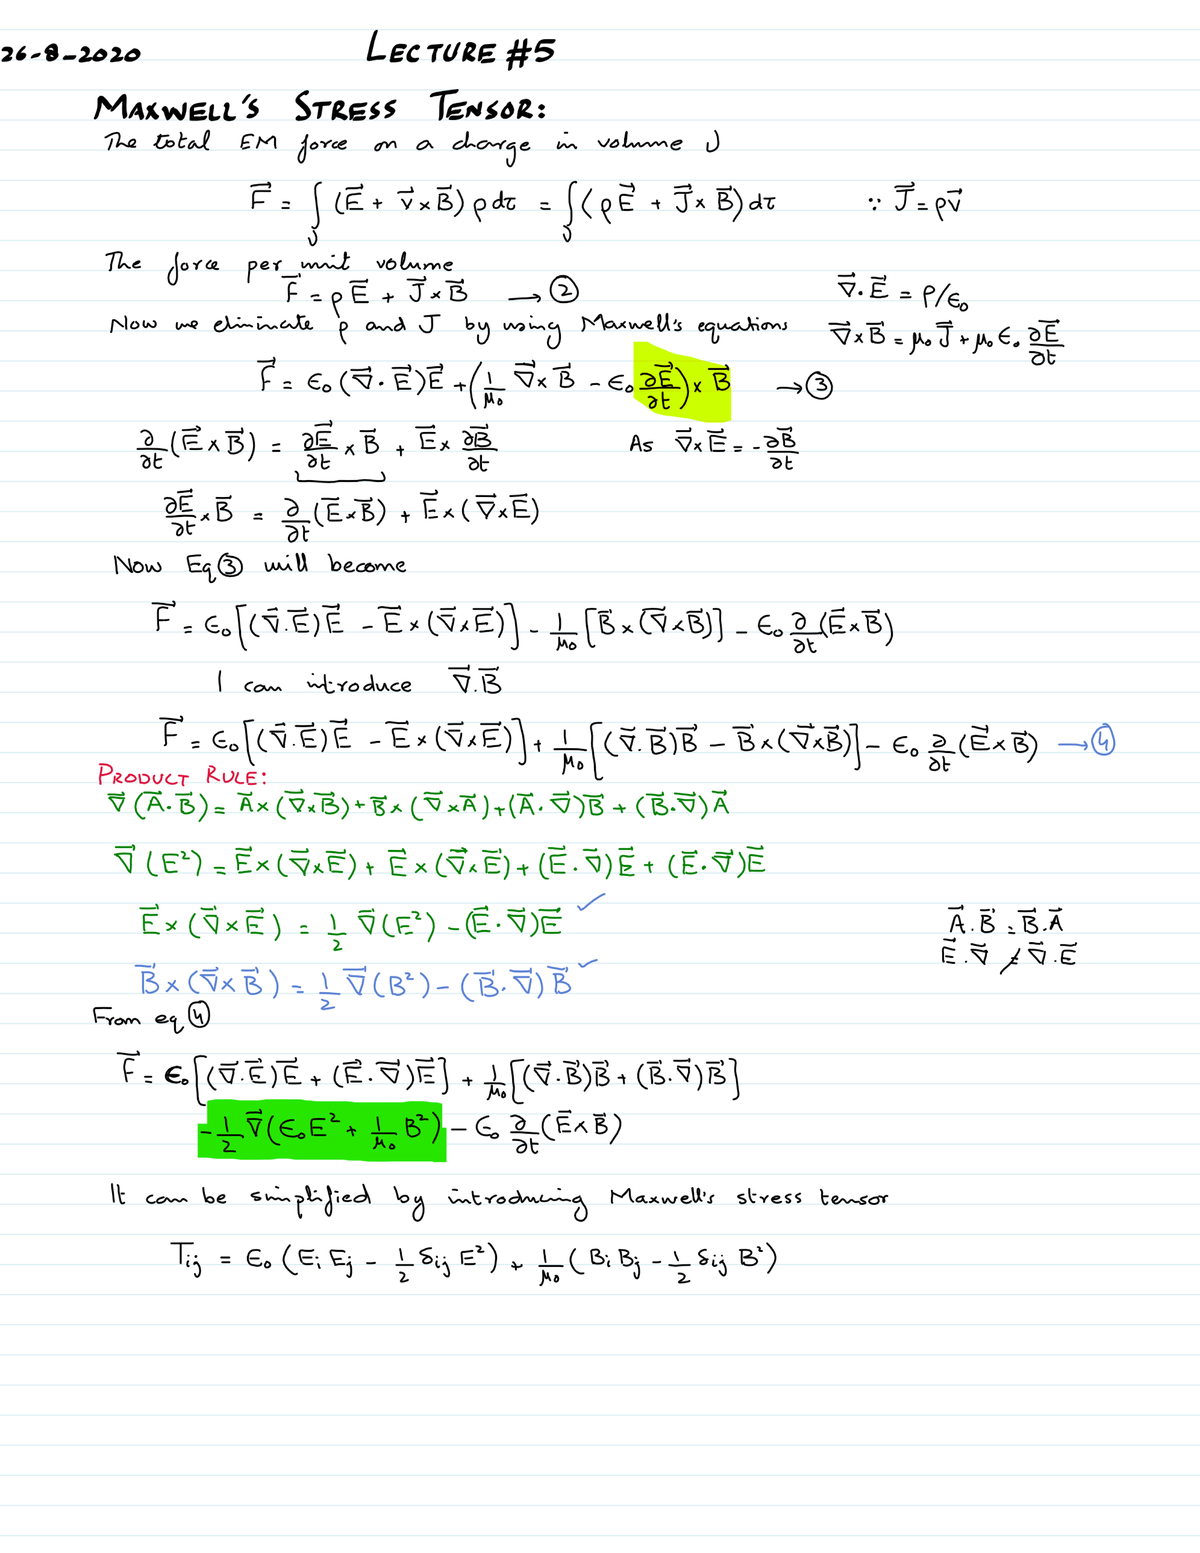 26-8-2020 LECTURE #5
MAXWELL'S STRESS TENSOR:
The total EM force on a charge in volume V
F⃗ = ∫_V (E⃗ + v⃗ × B⃗) ρ dτ = ∫_V (ρE⃗ + J⃗ × B⃗) dτ ∵ J⃗ = ρv⃗
The force per unit volume
F⃗ = ρE⃗ + J⃗ × B⃗ → ② ∇⃗.E⃗ = ρ/ϵ₀
Now we eliminate ρ and J by using Maxwell's equations ∇⃗×B⃗ = μ₀J⃗ + μ₀ϵ₀ ∂E⃗/∂t
F⃗ = ϵ₀(∇⃗·E⃗)E⃗ + (1/μ₀ ∇⃗×B⃗ - ϵ₀ ∂E⃗/∂t) × B⃗ → ③
∂/∂t (E⃗×B⃗) = ∂E⃗/∂t × B⃗ + E⃗ × ∂B⃗/∂t As ∇⃗×E⃗ = -∂B⃗/∂t
∂E⃗/∂t × B⃗ = ∂/∂t (E⃗×B⃗) + E⃗×(∇⃗×E⃗)
Now Eq ③ will become
F⃗ = ϵ₀[(∇⃗.E⃗)E⃗ - E⃗×(∇⃗×E⃗)] - 1/μ₀ [B⃗×(∇⃗×B⃗)] - ϵ₀ ∂/∂t (E⃗×B⃗)
I can introduce ∇⃗.B⃗
F⃗ = ϵ₀[(∇⃗.E⃗)E⃗ - E⃗×(∇⃗×E⃗)] + 1/μ₀ [(∇⃗.B⃗)B⃗ - B⃗×(∇⃗×B⃗)] - ϵ₀ ∂/∂t (E⃗×B⃗) → ④
PRODUCT RULE:
∇⃗(A⃗.B⃗) = A⃗×(∇⃗×B⃗) + B⃗×(∇⃗×A⃗) + (A⃗.∇⃗)B⃗ + (B⃗.∇⃗)A⃗
∇⃗(E²) = E⃗×(∇⃗×E⃗) + E⃗×(∇⃗×E⃗) + (E⃗.∇⃗)E⃗ + (E⃗.∇⃗)E⃗
E⃗×(∇⃗×E⃗) = 1/2 ∇⃗(E²) - (E⃗.∇⃗)E⃗ ✓ A⃗.B⃗ = B⃗.A⃗
E⃗.∇⃗ ≠ ∇⃗.E⃗
B⃗×(∇⃗×B⃗) = 1/2 ∇⃗(B²) - (B⃗.∇⃗)B⃗ ✓
From eq ④
F⃗ = ϵ₀[(∇⃗.E⃗)E⃗ + (E⃗.∇⃗)E⃗] + 1/μ₀ [(∇⃗.B⃗)B⃗ + (B⃗.∇⃗)B⃗]
- 1/2 ∇⃗(ϵ₀E² + 1/μ₀ B²) - ϵ₀ ∂/∂t (E⃗×B⃗)
It can be simplified by introducing Maxwell's stress tensor
Tij = ϵ₀ (Ei Ej - 1/2 δij E²) + 1/μ₀ (Bi Bj - 1/2 δij B²)